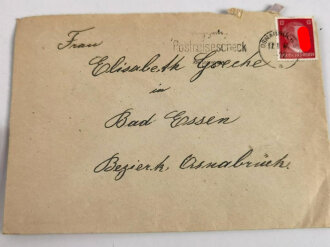 Frau
Postreisescheck
Elisabeth Goecke
in
Bad Essen
Bezirk Osnabrück.